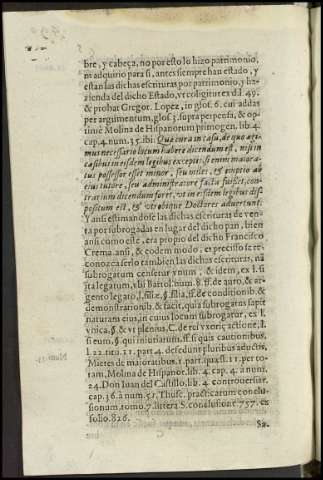 bre, y cabeça, no por esto lo hizo patrimonio,
ni adquirio para si, antes siempre han estado, y
estan las dichas escrituras por patrimonio, y ha-
zienda del dicho Estado, vt colligitur ex d.l. 49.
& probat Gregor. Lopez, in glos. 6. cui addas
per argumentum, glos. 3. supra perpensa, & op-
timè Molina de Hispanorum primogen. lib. 4.
cap. 4. num. 35. ibi: Quæ cura in casu, de quo agi-
mus necessario locum habere dicendum est, nisi in
casibus in eisdem legibus exceptis: si enim maiora-
tus possessor esset minor, seu miles, & emptio ab
eius tutore, seu administratore facta fuisset, con-
trarium dicendum foret, vt in eisdem legibus dis-
positum est, & vtrobique Doctores aduertunt.
Y ansi estimandose las dichas escrituras de ven-
ta por subrogadas en lugar del dicho pan, bien
ansi como este, era propio del dicho Francisco
Crema, ansi, & eodem modo, es preciso se re-
conozca serlo tambien las dichas escrituras, nã
subrogatum censetur vnum, & idem, ex l. si
sta legatum, vbi Bartol. num. 8. ff. de auro, & ar-
gento legato, l. filiæ, § filia, ff. de conditionib. &
demonstrationib. & facit, quia subrogatus sapit
naturam eius, in cuius locum subrogatur, ex l.
vnica. § & vt plenius, C. de rei vxoriç actione, l.
si eum, § qui iniuriarum, ff. si quis cautionibus,
l. 22. tit. 11. part. 4. defendunt pluribus aductis,
Mieres de maioratibus, 1. part. quæst. 11. per to-
tam, Molina de Hispanor. lib. 4. cap. 4. à num.
24. Don Iuan del Castillo, lib. 4. controuersiar.
cap. 36. à num. 51. Thusc. practicarum conclu-
sionum, tomo 7. littera S. conclusione 757. ex
folio 826.